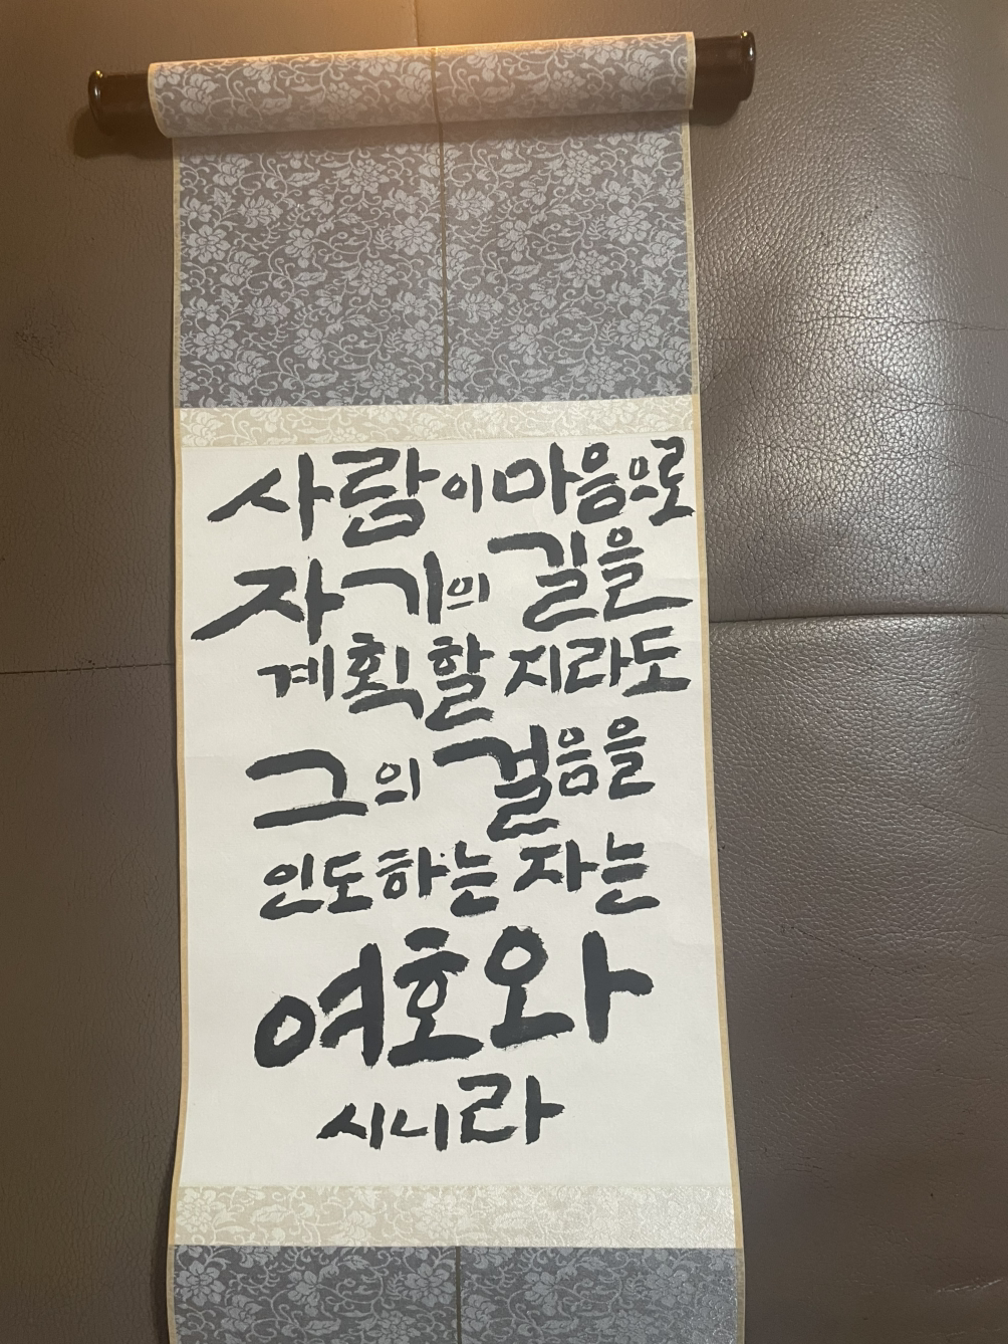 사람이 마음으로
자기의 길을
계획할지라도
그의 걸음을
인도하는 자는
여호와
시니라